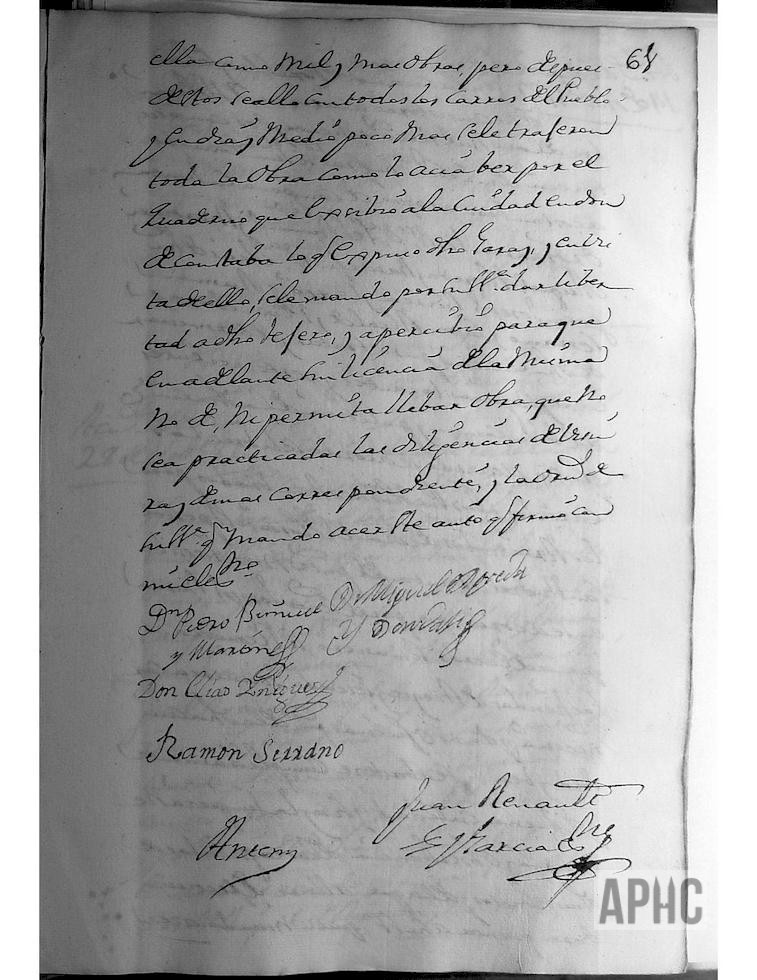 ella como mil y mas obras, pero despues 64
destos se allo en todos los carros del Pueblo
y en dras y Medio poco mas se le trageron
toda la Obra como lo acia ber por el
quaderno que Exsibio a la Ciudad en don
de constaba lo q Expuso dho y en bis
ta de ello, se le mando por su Sª. dar liber
tad a dho y apercibio para que
en adelante sin licencia de la misma
No de, Ni permita llebar Obra, que No
sea practicadas las diligencias de
ra, y demas correspondientes, y la orn de
su Sª. q Mando acer este auto q firmo con
mi el esno
Dn Pedro Buñuel Dn Miguel
y Martinez y
Don Elias Iñiguez
Ramon Serrano
Juan Renault
Antemi
y Garcia esno
APHC